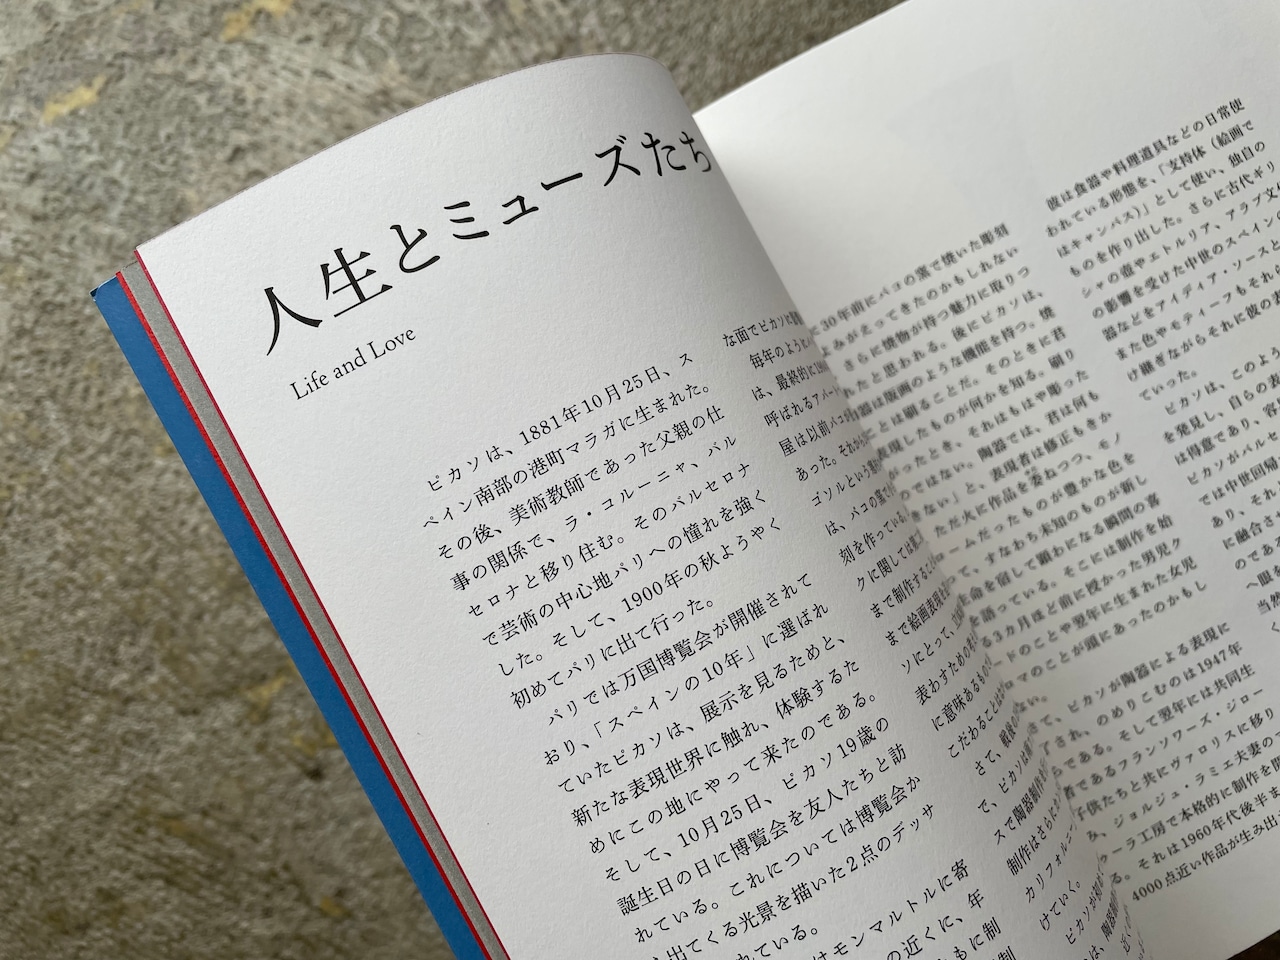 人生とミューズたち
Life and Love
ピカソは、1881年10月25日、ス
ペイン南部の港町マラガに生まれた。
その後、美術教師であった父親の仕
事の関係で、ラ・コルーニャ、バル
セロナと移り住む。そのバルセロナ
で芸術の中心地パリへの憧れを強く
した。そして、1900年の秋ようやく
初めてパリに出て行った。
パリでは万国博覧会が開催されて
おり、「スペインの10年」に選ばれ
ていたピカソは、展示を見るためと、
新たな表現世界に触れ、体験するた
めにこの地にやって来たのである。
そして、10月25日、ピカソ19歳の
誕生日の日に博覧会を友人たちと訪
れている。これについては博覧会か
ら出てくる光景を描いた2点のデッサ
れている。
はモンマルトルに寄
の近くに、年
もに制
な面でピカソに
毎年のように
は、最終的に
呼ばれるアパート
屋は以前パコ
あった。それから
ゴソルという
は、パコの窯で
刻を作っている。
クに関しては
まで制作すること
まで絵画表現を
ソにとって、
表わすための
に意味あるもの
こだわることは
さて、戦後の
で、ピカソは
スで陶器制作
制作はさらに
カリフォルニ
けていく。
ピカソが
に30年前にパコの窯で焼いた彫刻
よみがえってきたのかもしれない
さらに焼物が持つ魅力に取りつ
たと思われる。後にピカソは、
器は版画のような機能を持つ。焼
ことは刷ることだ。そのときに君
表現したものが何かを知る。刷り
がったとき、それはもはや彫った
のではない。陶器では、君は何も
きない」と、表現者は修正もきか
ただ火に作品を委ねつつ、モノ
ロームだったものが豊かな色を
て、すなわち未知のものが新し
命を宿して顕わになる瞬間の喜
を語っている。そこには制作を始
る3カ月ほど前に授かった男児ク
ードのことや翌年に生まれた女児
ロマのことが頭にあったのかもし
ない。
て、ピカソが陶器による表現に
され、のめりこむのは1947年
らである。そして翌年には共同生
者であるフランソワーズ・ジロー
子供たちと共にヴァロリスに移り
み、ジョルジュ・ラミエ夫妻の
ューラ工房で本格的に制作を開
る。それは1960年代後半ま
4000点近い作品が生み出
彼は食器や料理道具などの日常使
われている形態を、「支持体（絵画で
はキャンバス）」として使い、独自の
ものを作り出した。さらに古代ギリ
シャの壺やエトルリア、アラブ文
の影響を受けた中世のスペイン
器などをアイディア・ソースと
また色やモティーフもそれ
け継ぎながらそれに彼の表
ていった。
ピカソは、このよう
を発見し、自らの表
は得意であり、容
ピカソがバルセ
では中世回帰
あり、それ
に融合さ
のである
へ眼を
当然